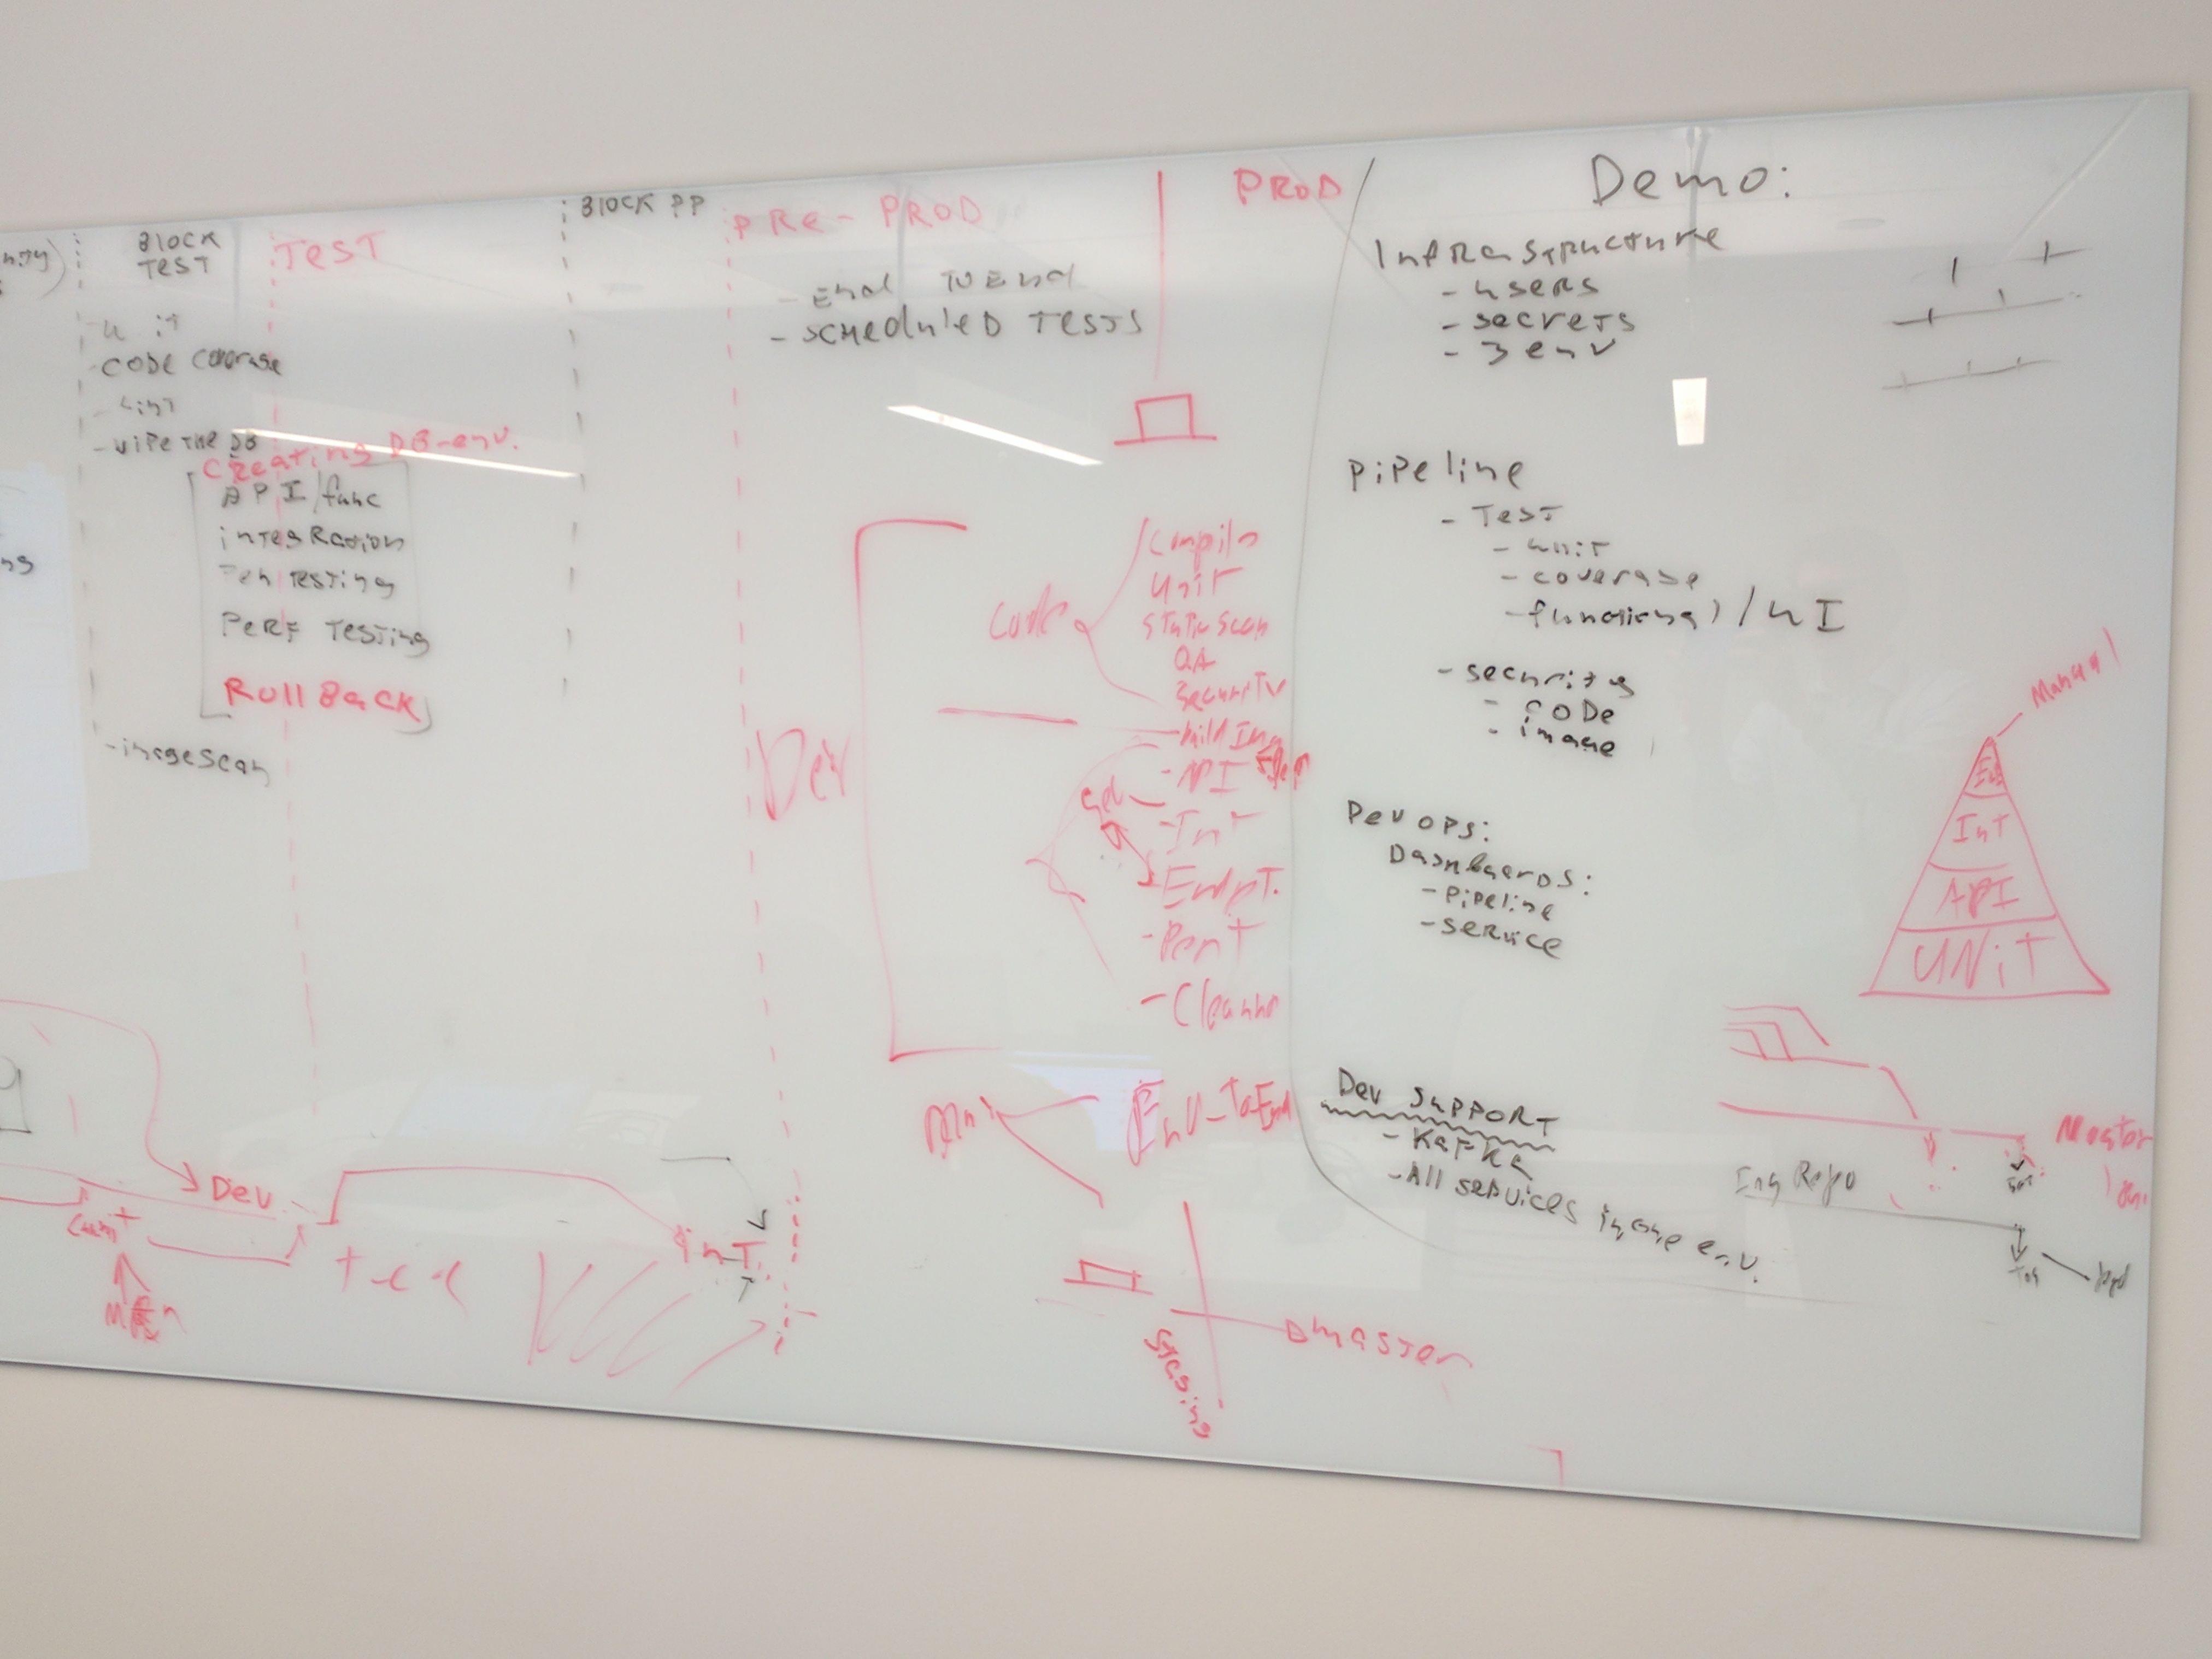 BLOCK
TEST
TEST
BLOCK PP
PRe-PROD
PROD
- CODE COverage
- Lint
- wipe THE DB
Creating DB-env.
API/func
integRation
Pen Testing
PeRF Testing
RollBack
- image scan
- End To End
- SCHEDUlED TESTS
Dev
Code
Compile
Unit
Static Scan
QA
Security
- API
- Int
- Cleanup
End-To-End
Dev
inT.
Staging
master
Demo:
InfRastructure
- users
- secrets
- 3 env
Pipeline
- Test
- unit
- coverage
- functional / UI
- security
- CODe
- image
Devops:
Dashboards:
- Pipeline
- Service
Dev SuppoRT
- KaFKa
- All services in one env.
Manual
InT
API
UNiT
Master
Img Repo